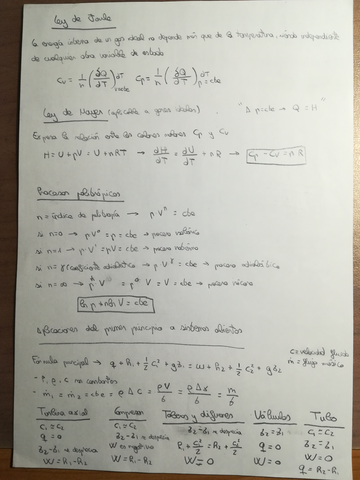 Ley de Joule
La energía interna de un gas ideal no depende más que de la temperatura, siendo independiente
de cualquier otra variable de estado
Cv = 1/n (δQ/dT) Cp = 1/n (δQ/dT) p=cte
Ley de Mayer (aplicable a gases ideales) "A p=cte → Q = H"
Expresa la relación entre los calores molares Cp y Cv
H = U + pV = U + nRT → dH/dT = dU/dT + nR → Cp - Cv = nR
Procesos politrópicos
n = índice de politropía → p·Vⁿ = cte
si n=0 → p·V⁰ = p = cte → proceso isobárico
si n=1 → p·V¹ = pV = cte → proceso isotermo
si n = γ coeficiente adiabático → p V^γ = cte → proceso adiabático
si n = ∞ → V = V = cte → proceso isócoro
ln p + n ln V = cte
Aplicaciones del primer principio a sistemas abiertos
Fórmula principal → q + h1 + 1/2 c1² + gz1 = w + h2 + 1/2 c2² + gz2
c = velocidad fluido
ṁ = flujo másico
- ρ, c no constantes
- ṁ1 = ṁ2 = cte = = ρV/t = = m/t
Turbina axial Compresor Toberas y difusores Válvulas Tubo
c1 = c2 c1 = c2 z2 - z1 → desprecia z2 = z1 c1 = c2
q = 0 z2 - z1 → desprecia h1 + c1²/2 = h2 + c2²/2 q = 0 z2 = z1
z2 - z1 → desprecia W es negativo W = 0 W = 0 W = 0
W = h1 - h2 W = h1 - h2 h1 = h2 q = h2 - h1